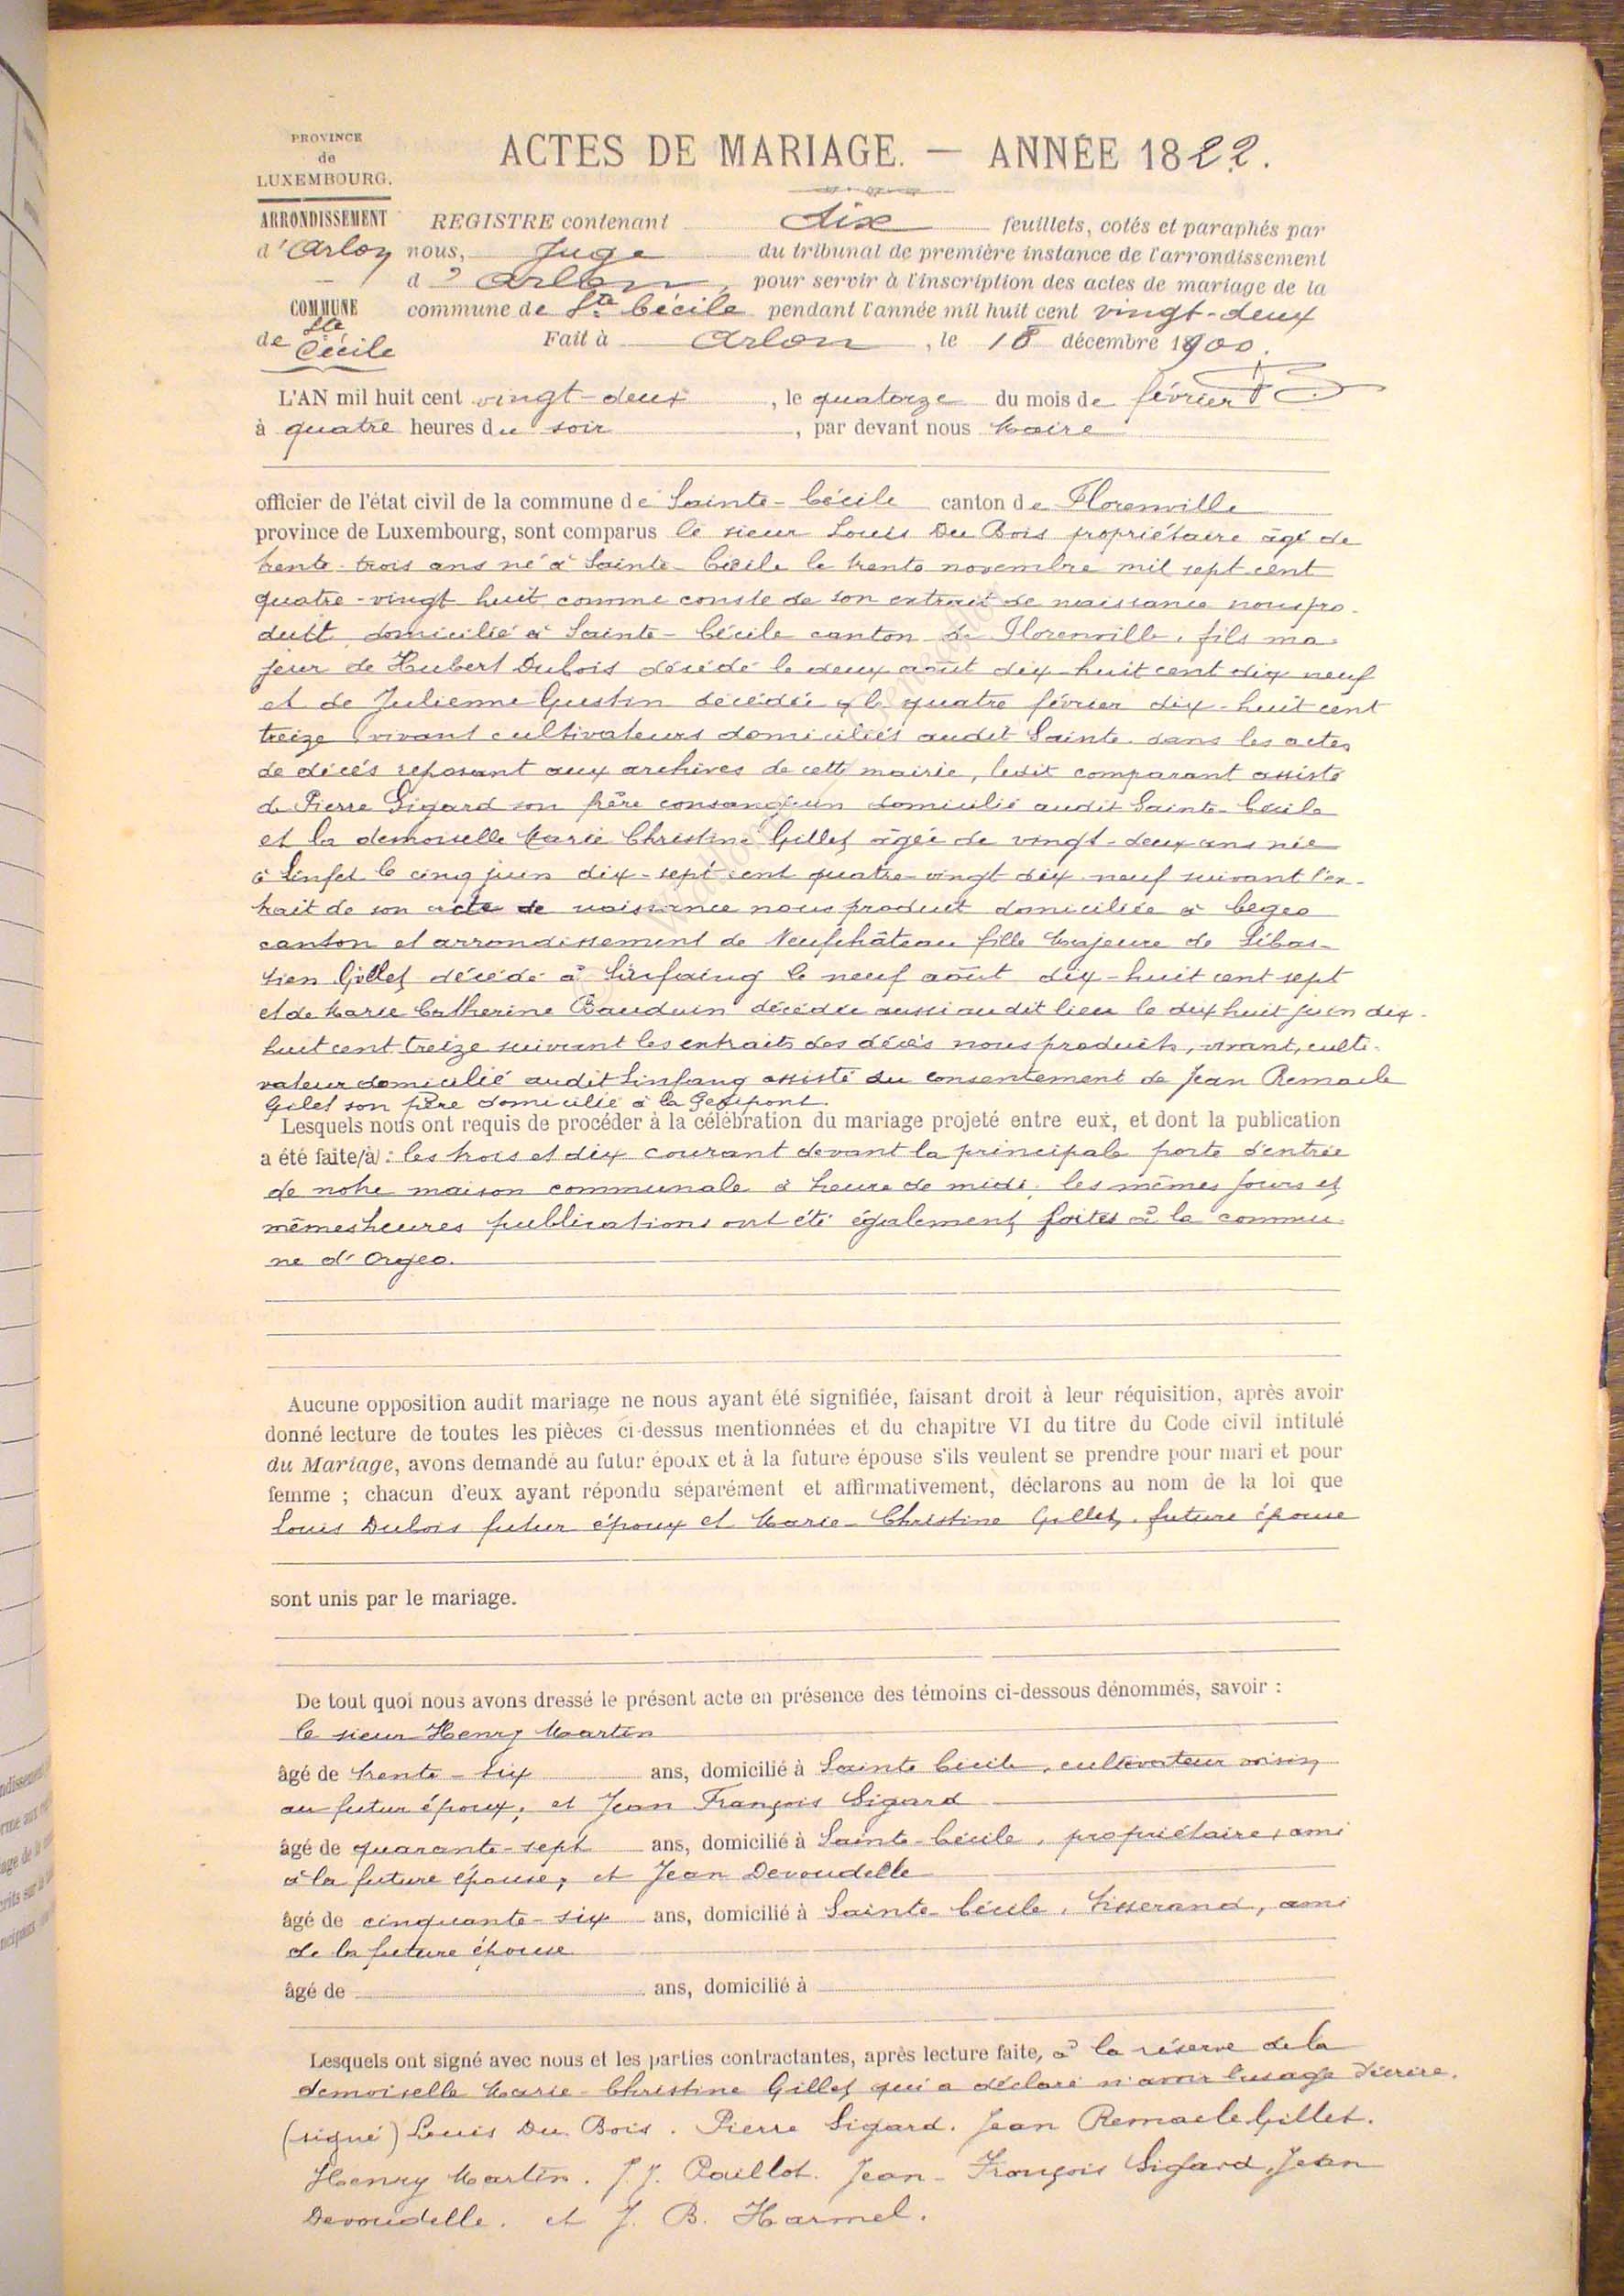 PROVINCE
de
LUXEMBOURG.
ARRONDISSEMENT
d'Arlon
COMMUNE
de Ste Cécile
ACTES DE MARIAGE. — ANNÉE 1822.
REGISTRE contenant dix feuillets, cotés et paraphés par
nous, Juge du tribunal de première instance de l'arrondissement
d'Arlon, pour servir à l'inscription des actes de mariage de la
commune de Ste Cécile pendant l'année mil huit cent vingt-deux
Fait à Arlon, le 18 décembre 1900.
L'AN mil huit cent vingt-deux, le quatorze du mois de février
à quatre heures du soir, par devant nous Maire
officier de l'état civil de la commune de Sainte-Cécile canton de Florenville
province de Luxembourg, sont comparus le sieur Louis Du Bois propriétaire âgé de
trente-trois ans né à Sainte-Cécile le trente novembre mil sept cent
quatre-vingt huit comme conste de son extrait de naissance nous pro-
duit domicilié à Sainte-Cécile canton de Florenville, fils ma-
jeur de Hubert Dubois décédé le deux août dix-huit cent dix neuf
et de Julienne Gustin décédée le quatre février dix-huit cent
treize vivant cultivateurs domiciliés audit Sainte dans les actes
de décés reposant aux archives de cette mairie, ledit comparant assisté
de Pierre Sigard son frère consanguin domicilié audit Sainte-Cécile
et la demoiselle Marie Christine Gillet âgée de vingt-deux ans née
à Sinfet le cinq juin dix-sept cent quatre-vingt dix-neuf suivant l'ex-
trait de son acte de naissance nous produit domiciliée à
canton et arrondissement de Neufchâteau fille majeure de Sébas-
tien Gillet décédé à Sinfaing le neuf août dix-huit cent sept
et de Marie Catherine Bauduin décédée aussi au dit lieu le dix huit juin dix-
huit cent treize suivant les extraits des décès nous produits, vivant, culti-
vateur domicilié audit Sinfang assisté du consentement de Jean Remacle
Gilet son frère domicilié à la
Lesquels nous ont requis de procéder à la célébration du mariage projeté entre eux, et dont la publication
a été faite (à) : les trois et dix courant devant la principale porte d'entrée
de notre maison communale à heure de midi, les mêmes jours et
mêmes heures publications ont été également faites à la commu-
ne d'Orgeo.
Aucune opposition audit mariage ne nous ayant été signifiée, faisant droit à leur réquisition, après avoir
donné lecture de toutes les pièces ci-dessus mentionnées et du chapitre VI du titre du Code civil intitulé
du Mariage, avons demandé au futur époux et à la future épouse s'ils veulent se prendre pour mari et pour
femme ; chacun d'eux ayant répondu séparément et affirmativement, déclarons au nom de la loi que
Louis Dubois futur époux et Marie-Christine Gillet, future épouse
sont unis par le mariage.
De tout quoi nous avons dressé le présent acte en présence des témoins ci-dessous dénommés, savoir :
le sieur Henry Martin
âgé de trente-six ans, domicilié à Sainte Cécile, cultivateur voisin
au futur époux, et Jean François Sigard
âgé de quarante-sept ans, domicilié à Sainte-Cécile, propriétaire, ami
à la future épouse, et Jean Devoudelle
âgé de cinquante-six ans, domicilié à Sainte-Cécile, tisserand, ami
de la future épouse
âgé de ans, domicilié à
Lesquels ont signé avec nous et les parties contractantes, après lecture faite, à la réserve de la
demoiselle Marie-Christine Gillet qui a déclaré n'avoir l'usage d'écrire.
(signé) Louis Du Bois. Pierre Sigard. Jean Remacle Gillet.
Henry Martin. J. J. Paillot. Jean-François Sigard, Jean
Devoudelle. et J. B. Harmel.